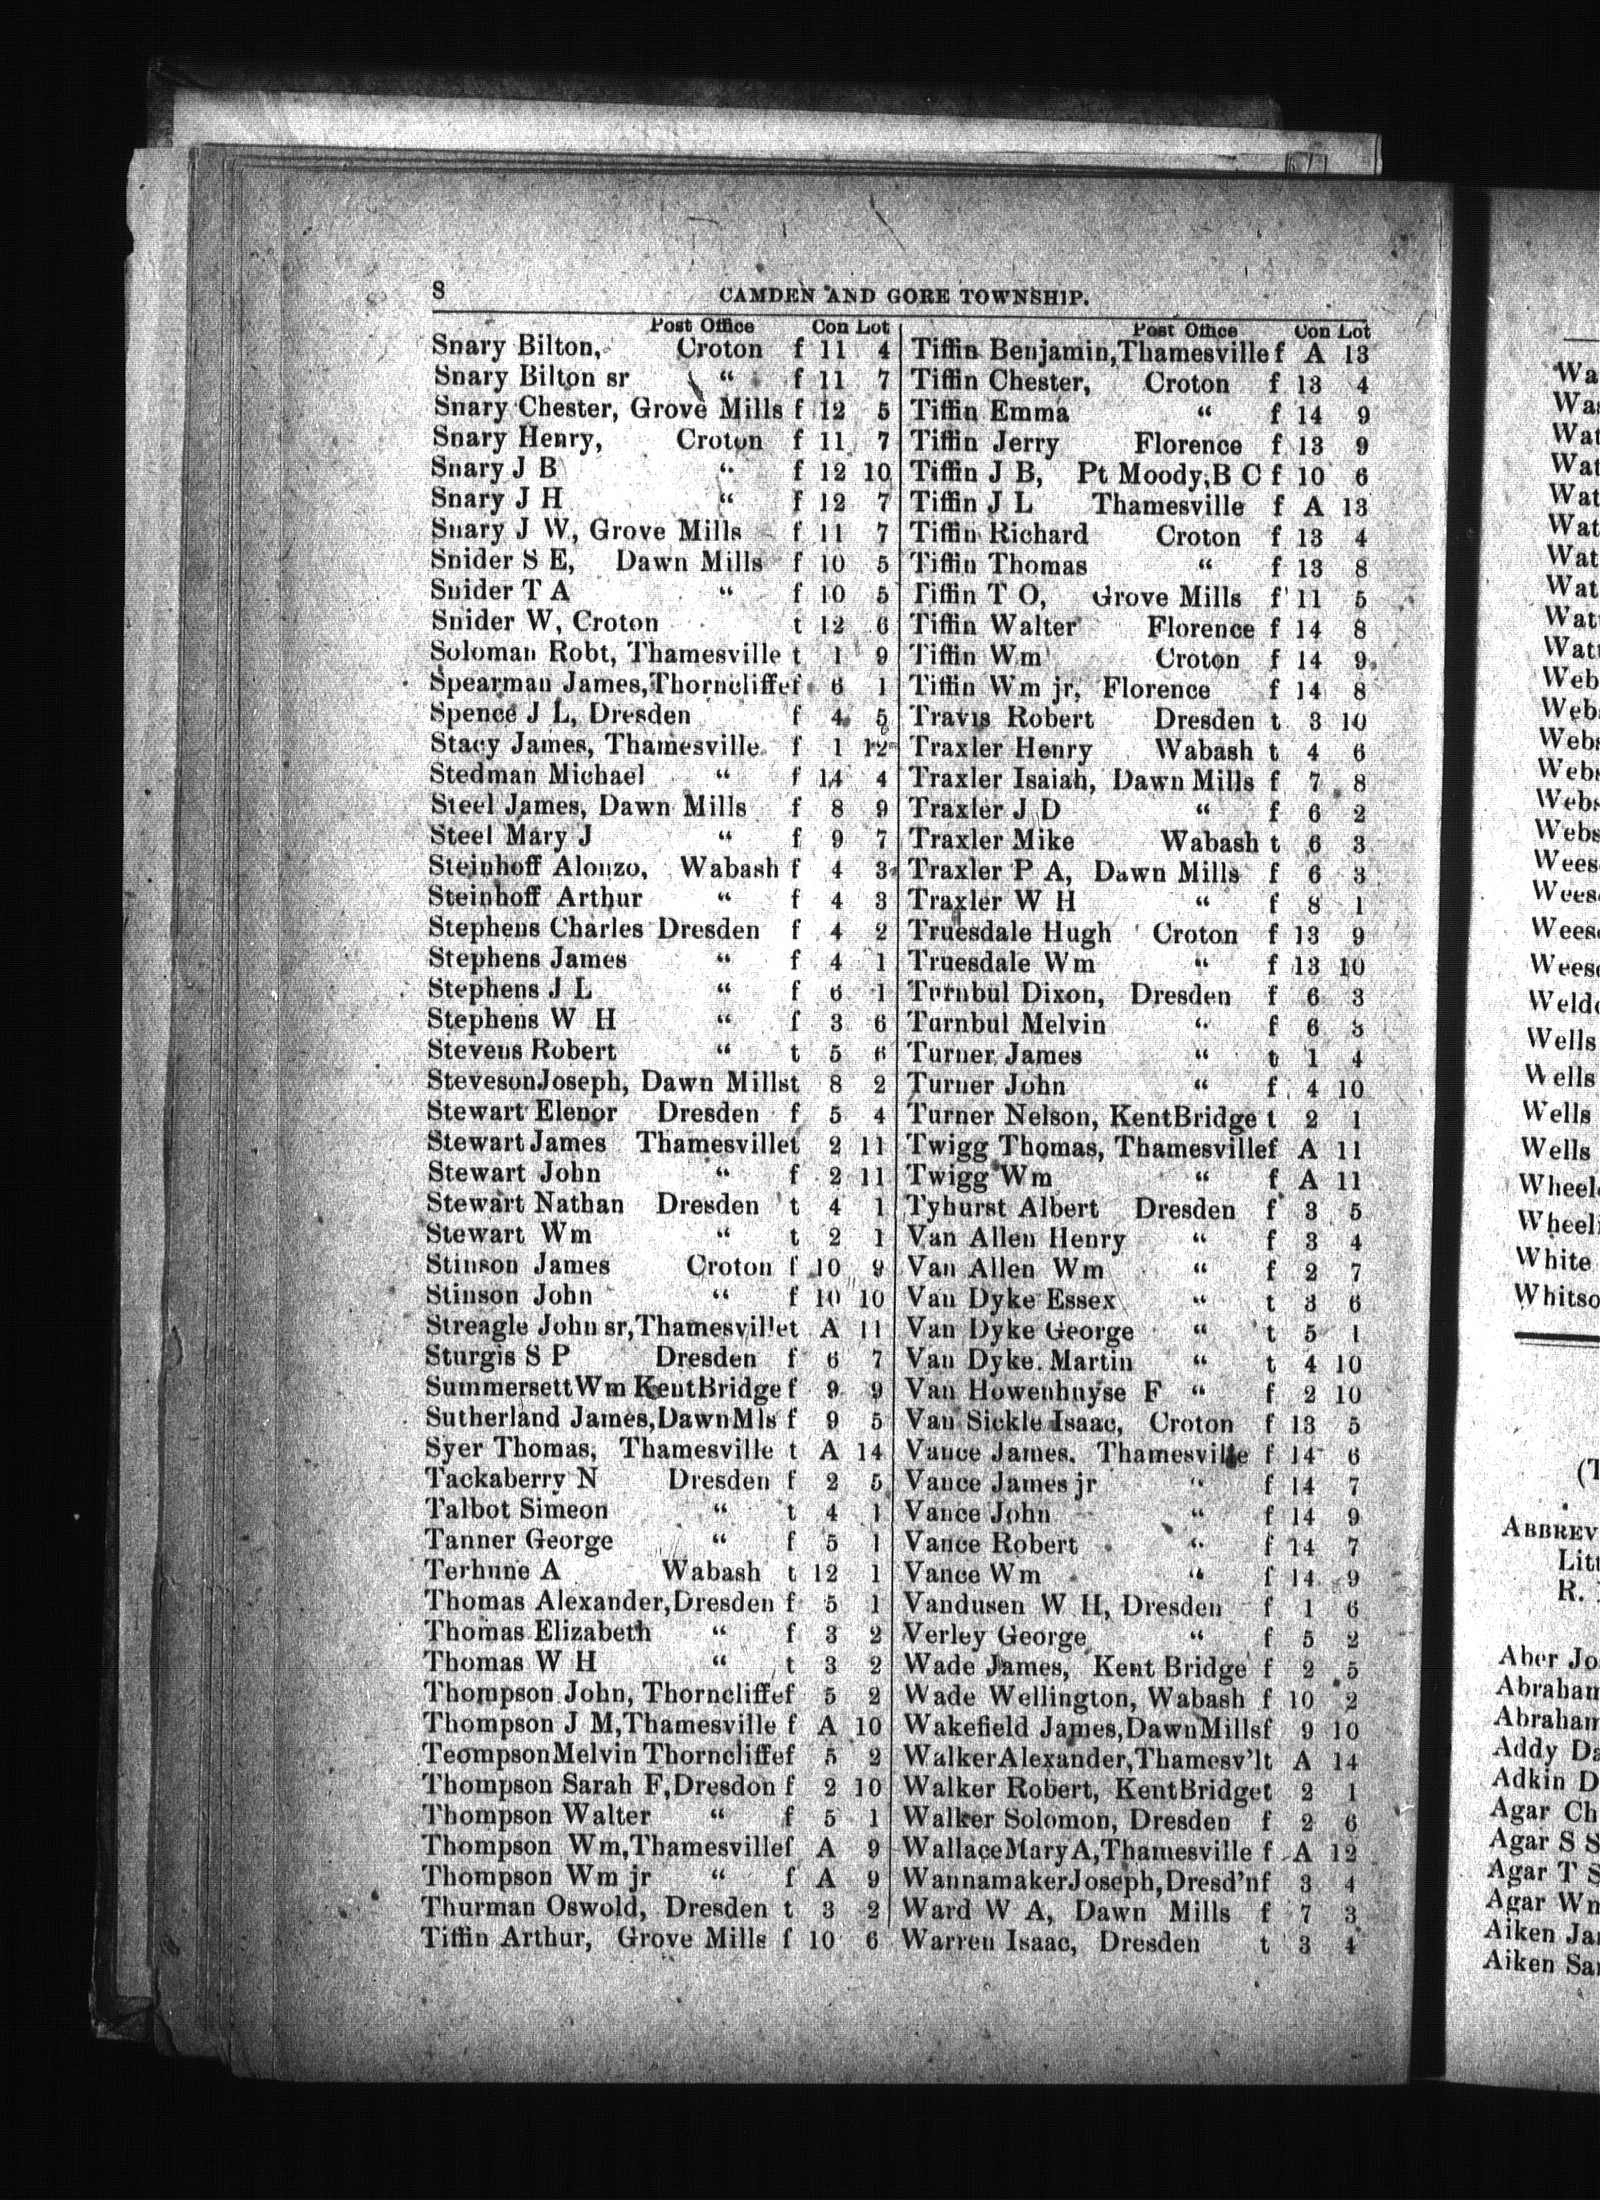 8 CAMDEN AND GORE TOWNSHIP.
Post Office Con Lot
Snary Bilton, Croton f 11 4
Snary Bilton sr “ f 11 7
Snary Chester, Grove Mills f 12 5
Snary Henry, Croton f 11 7
Snary J B “ f 12 10
Snary J H “ f 12 7
Snary J W, Grove Mills f 11 7
Snider S E, Dawn Mills f 10 5
Snider T A “ f 10 5
Snider W, Croton t 12 6
Soloman Robt, Thamesville t 1 9
Spearman James,Thorncliffef 6 1
Spence J L, Dresden f 4 5
Stacy James, Thamesville f 1 12
Stedman Michael “ f 14 4
Steel James, Dawn Mills f 8 9
Steel Mary J “ f 9 7
Steinhoff Alonzo, Wabash f 4 3
Steinhoff Arthur “ f 4 3
Stephens Charles Dresden f 4 2
Stephens James “ f 4 1
Stephens J L “ f 6 1
Stephens W H “ f 3 6
Stevens Robert “ t 5 6
StevesonJoseph, Dawn Millst 8 2
Stewart Elenor Dresden f 5 4
Stewart James Thamesvillet 2 11
Stewart John “ f 2 11
Stewart Nathan Dresden t 4 1
Stewart Wm “ t 2 1
Stinson James Croton f 10 9
Stinson John “ f 10 10
Streagle John sr,Thamesvillet A 11
Sturgis S P Dresden f 6 7
SummersettWm KentBridge f 9 9
Sutherland James,DawnMls f 9 5
Syer Thomas, Thamesville t A 14
Tackaberry N Dresden f 2 5
Talbot Simeon “ t 4 1
Tanner George “ f 5 1
Terhune A Wabash t 12 1
Thomas Alexander,Dresden f 5 1
Thomas Elizabeth “ f 3 2
Thomas W H “ t 3 2
Thompson John, Thorncliffef 5 2
Thompson J M,Thamesville f A 10
TeompsonMelvin Thorncliffef 5 2
Thompson Sarah F,Dresdon f 2 10
Thompson Walter “ f 5 1
Thompson Wm,Thamesvillef A 9
Thompson Wm jr “ f A 9
Thurman Oswold, Dresden t 3 2
Tiffin Arthur, Grove Mills f 10 6
Post Office Con Lot
Tiffin Benjamin,Thamesville f A 13
Tiffin Chester, Croton f 13 4
Tiffin Emma “ f 14 9
Tiffin Jerry Florence f 13 9
Tiffin J B, Pt Moody,B C f 10 6
Tiffin J L Thamesville f A 13
Tiffin Richard Croton f 13 4
Tiffin Thomas “ f 13 8
Tiffin T O, Grove Mills f 11 5
Tiffin Walter Florence f 14 8
Tiffin Wm Croton f 14 9
Tiffin Wm jr, Florence f 14 8
Travis Robert Dresden t 3 10
Traxler Henry Wabash t 4 6
Traxler Isaiah, Dawn Mills f 7 8
Traxler J D “ f 6 2
Traxler Mike Wabash t 6 3
Traxler P A, Dawn Mills f 6 3
Traxler W H “ f 8 1
Truesdale Hugh Croton f 13 9
Truesdale Wm “ f 13 10
Turnbul Dixon, Dresden f 6 3
Turnbul Melvin “ f 6 3
Turner James “ t 1 4
Turner John “ f 4 10
Turner Nelson, KentBridge t 2 1
Twigg Thomas, Thamesvillef A 11
Twigg Wm “ f A 11
Tyhurst Albert Dresden f 3 5
Van Allen Henry “ f 3 4
Van Allen Wm “ f 2 7
Van Dyke Essex “ t 3 6
Van Dyke George “ t 5 1
Van Dyke Martin “ t 4 10
Van Howenhuyse F “ f 2 10
Van Sickle Isaac, Croton f 13 5
Vance James, Thamesville f 14 6
Vance James jr “ f 14 7
Vance John “ f 14 9
Vance Robert “ f 14 7
Vance Wm “ f 14 9
Vandusen W H, Dresden f 1 6
Verley George “ f 5 2
Wade James, Kent Bridge f 2 5
Wade Wellington, Wabash f 10 2
Wakefield James,DawnMillsf 9 10
WalkerAlexander,Thamesv'lt A 14
Walker Robert, KentBridget 2 1
Walker Solomon, Dresden f 2 6
WallaceMary A,Thamesville f A 12
WannamakerJoseph,Dresd'nf 3 4
Ward W A, Dawn Mills f 7 3
Warren Isaac, Dresden t 3 4
Wa
Wa
Wat
Wat
Wat
Wat
Wat
Wat
Wat
Wat
Web
Web
Webs
Webs
Webs
Webs
Wees
Wees
Wees
Wees
Weld
Wells
Wells
Wells
Wells
Wheel
Wheel
White
Whitso
(T
ABBREV
Litt
R.
Aber Jo
Abraham
Abraham
Addy Da
Adkin D
Agar Ch
Agar S S
Agar T S
Agar Wm
Aiken Ja
Aiken Sa